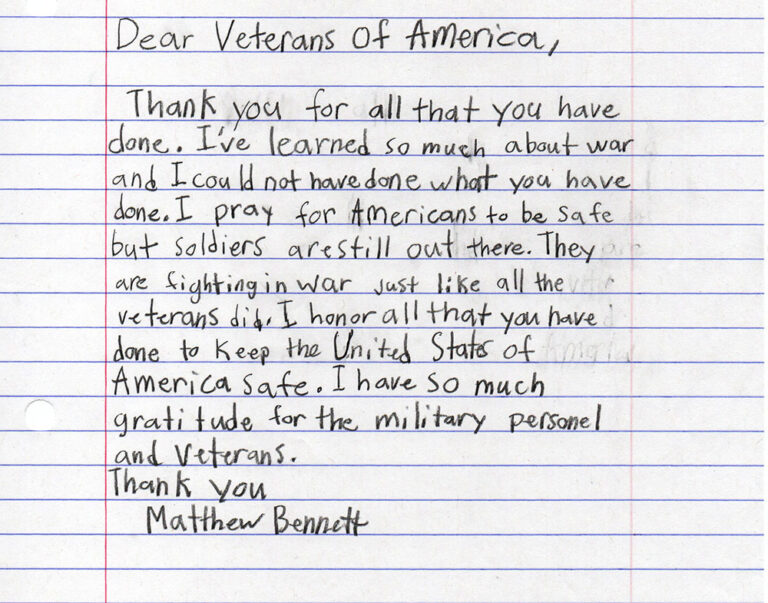 Dear Veterans Of America,
Thank you for all that you have
done. I've learned so much about war
and I could not have done what you have
done. I pray for Americans to be safe
but soldiers are still out there. They
are fighting in war just like all the
veterans did. I honor all that you have
done to keep the United States of
America safe. I have so much
gratitude for the military personel
and Veterans.
Thank you
Matthew Bennett